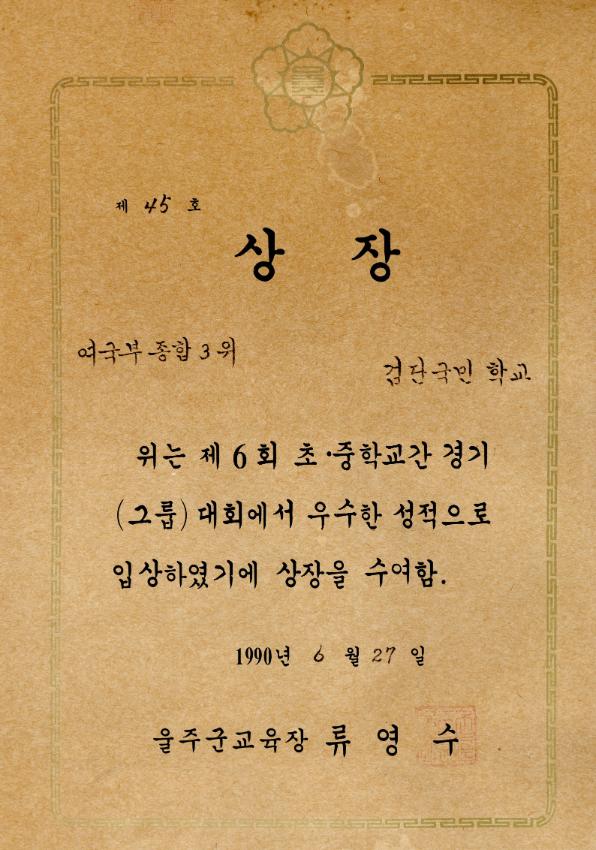 제 45 호
상 장
여국부 종합 3 위
검단국민 학교
위는 제 6 회 초·중학교간 경기
(그룹) 대회에서 우수한 성적으로
입상하였기에 상장을 수여함.
1990년 6 월 27 일
울주군교육장 류 영 수